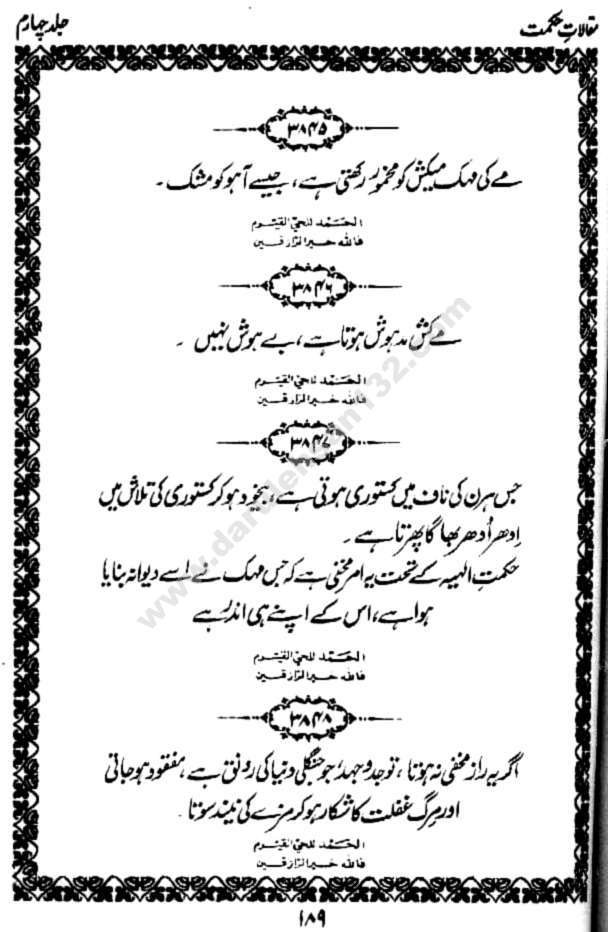 مقالاتِ حکمت
جلد چہارم
۳۸۴۵
مے کی مہک میکش کو مخمور رکھتی ہے، جیسے آہو کو مشک ۔
الحَمد للحیّ القیّوم
فاللہ خیر الرّازقین
۳۸۴۶
مے کش مدہوش ہوتا ہے، بے ہوش نہیں ۔
الحَمد للحیّ القیّوم
فاللہ خیر الرّازقین
۳۸۴۷
جس ہرن کی ناف میں کستوری ہوتی ہے، بیخود ہو کر کستوری کی تلاش میں
اِدھر اُدھر بھاگا پھرتا ہے ۔
حکمتِ الٰہیہ کے تحت یہ امر مخفی ہے کہ جس مہک نے اسے دیوانہ بنایا
ہوا ہے، اس کے اپنے ہی اندر ہے
الحَمد للحیّ القیّوم
فاللہ خیر الرّازقین
۳۸۴۸
اگر یہ راز مخفی نہ ہوتا، تو جدوجہد، جو جنگلی دنیا کی رونق ہے، مفقود ہو جاتی
اور مِرگ غفلت کا شکار ہو کر مزے کی نیند سوتا ۔
الحَمد للحیّ القیّوم
فاللہ خیر الرّازقین
۱۸۹
www.darulehsan132.com